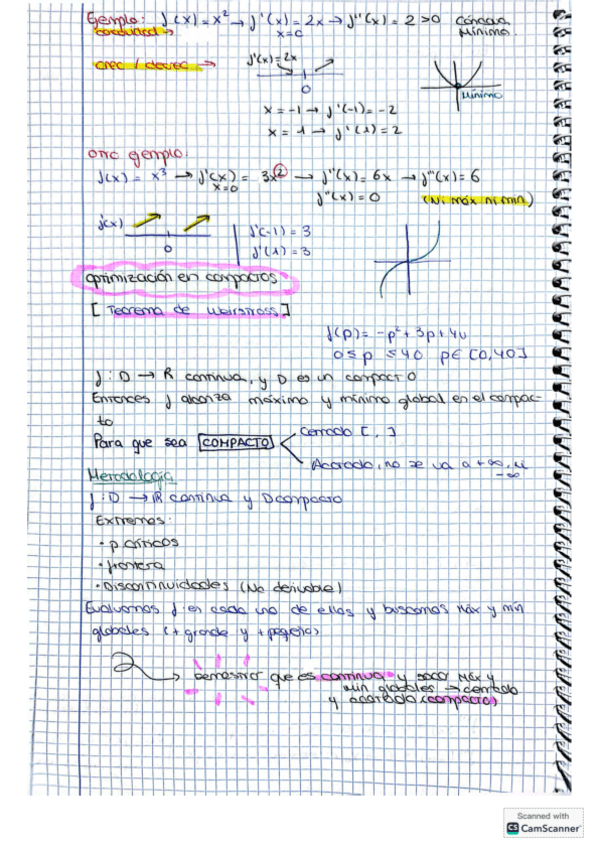 Ejemplo: f(x) = x² → f'(x) = 2x → f''(x) = 2 > 0 Cóncava
concavidad → x=0 Mínimo.
crec / decrec → f'(x) = 2x
0
Mínimo
x = -1 → f'(-1) = -2
x = 1 → f'(1) = 2
otro ejemplo:
f(x) = x³ → f'(x) = 3x² → f''(x) = 6x → f'''(x) = 6
x=0 f''(x) = 0 (Ni máx ni min)
f'(x)
0
f'(-1) = 3
f'(1) = 3
optimización en compactos.
[Teorema de Weirstrass]
f(p) = -p² + 3p + 40
0 ≤ p ≤ 40 p∈[0,40]
f: D → R continua, y D es un compacto
Entonces f alcanza máximo y mínimo global en el compac-
to
Para que sea COMPACTO
Cerrado [ , ]
Acotado, no se va a +∞, ni
-∞
Metodología
f: D → R continua y D compacto
Extremos:
· p. críticos
· frontera
· Discontinuidades (No derivable)
Evaluamos f en cada uno de ellos y buscamos máx y mín
globales (+ grande y + pequeño)
→ Demostrar que es continua y saco máx y
min globales → cerrado
y acotado (compacto)
Scanned with
CS CamScanner